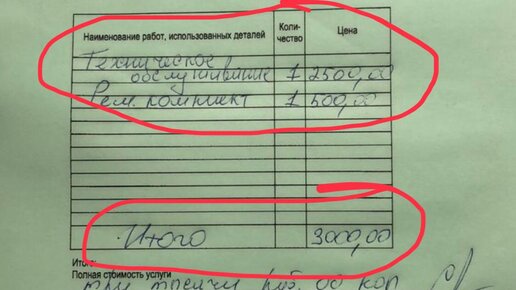 Наименование работ, использованных деталей Коли-чество Цена
Техническое
обслуживание 1 2500,00
Рем. комплект 1 500,00
Итого 3000,00
Итого:
Полная стоимость услуги
три тысячи руб. 00 коп